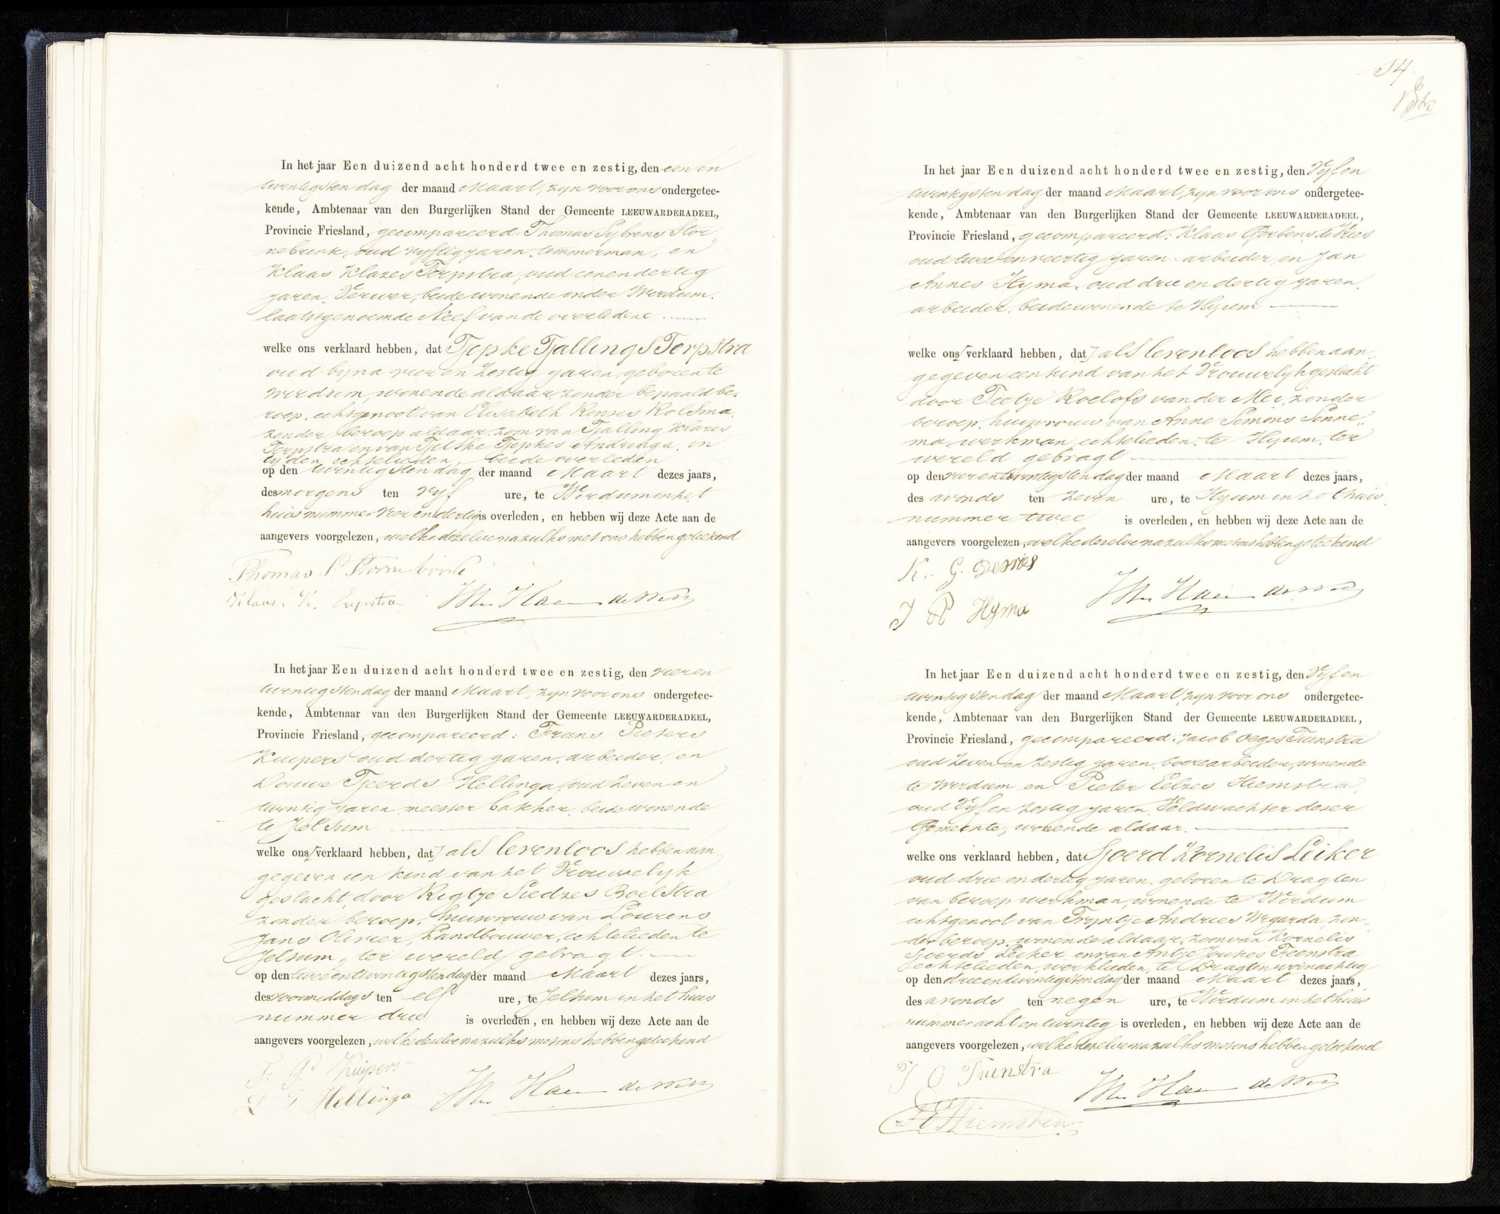 In het jaar Een duizend acht honderd twee en zestig, den een en
twintigsten dag der maand Maart, zijn voor ons ondergetee-
kende, Ambtenaar van den Burgerlijken Stand der Gemeente LEEUWARDERADEEL,
Provincie Friesland, gecompareerd: Thomas Sybrens Stor
nebrink, oud vyftig jaren, timmerman, en
Klaas Klazes Terpstra, oud een en dertig
jaren, Verwer, beide wonende onder Wirdum,
laatstgenoemde Neef van de overledene
welke ons verklaard hebben, dat Tjepke Tjallings Terpstra
oud byna vier en zestig jaren, geboren te
Wirdum, wonende aldaar, zonder bepaald be-
roep, echtgenoot van Elisabeth Rinses Kolsma,
zonder beroep aldaar, zoon van Tjalling Klazes
Terpstra en van Tetske Tjepkes Andringa, in
tyden echtelieden, beide overleden
op den twintigsten dag der maand Maart dezes jaars,
des morgens ten vyf ure, te Wirdum in het
huis nummer vier en dertig is overleden, en hebben wij deze Acte aan de
aangevers voorgelezen, welke dezelve nazulks met ons hebben geteekend
Thomas S Stornebrink
Klaas K. Terpstra
In het jaar Een duizend acht honderd twee en zestig, den vier en
twintigsten dag der maand Maart, zijn voor ons ondergetee-
kende, Ambtenaar van den Burgerlijken Stand der Gemeente LEEUWARDERADEEL,
Provincie Friesland, gecompareerd: Frans Pieters
Kuipers oud dertig jaren, arbeider, en
Douwe Tjeerds Hellinga, oud zeven en
twintig jaren, meester bakker, beide wonende
te Jelsum
welke ons verklaard hebben, dat zy als levenloos hebben aan
gegeven een kind van het Vrouwelijk
geslacht, door Rigtje Siedzes Boelstra
zonder beroep, huisvrouw van Lourens
Jans Olivier, Landbouwer, echtelieden te
Jelsum, ter wereld gebragt
op den twee en twintigsten dag der maand Maart dezes jaars,
des voormiddags ten elf ure, te Jelsum in het huis
nummer drie is overleden, en hebben wij deze Acte aan de
aangevers voorgelezen, welke dezelve nazulks met ons hebben geteekend
F. P. Kuipers
D. T. Hellinga
14
In het jaar Een duizend acht honderd twee en zestig, den Vyf en
twintigsten dag der maand Maart, zijn voor ons ondergetee-
kende, Ambtenaar van den Burgerlijken Stand der Gemeente LEEUWARDERADEEL,
Provincie Friesland, gecompareerd: Klaas Gerbens de Vries
oud twee en veertig jaren, arbeider, en Jan
Annes Hyma, oud drie en dertig jaren,
arbeider, beide wonende te Hijum
welke ons verklaard hebben, dat zy als levenloos hebben aan
gegeven een kind van het Vrouwelijk geslacht
door Teetje Roelofs van der Mei, zonder
beroep, huisvrouw van Anne Simons Sinne
ma, werkman, echtelieden, te Hijum, ter
wereld gebragt
op den vier en twintigsten dag der maand Maart dezes jaars,
des avonds ten zeven ure, te Hijum in het huis
nummer twee is overleden, en hebben wij deze Acte aan de
aangevers voorgelezen, welke dezelve nazulks met ons hebben geteekend
K. G. de vries
J A Hyma
In het jaar Een duizend acht honderd twee en zestig, den Vyf en
twintigsten dag der maand Maart, zijn voor ons ondergetee-
kende, Ambtenaar van den Burgerlijken Stand der Gemeente LEEUWARDERADEEL,
Provincie Friesland, gecompareerd: Jacob Oeges Tuinstra
oud zeven en zestig jaren, boerearbeider, wonende
te Wirdum en Pieter Eelzes Hiemstra,
oud Vyf en zestig jaren, Veldwachter dezer
Gemeente, wonende aldaar.
welke ons verklaard hebben, dat Sjoerd Kornelis Leiker
oud drie en dertig jaren, geboren te Dragten
van beroep werkman, wonende te Wirdum
echtgenoot van Tryntje Andries Wegarda, zon-
der beroep, wonende aldaar, zoon van Kornelis
Sjoerds Leiker en van Antje Foukes Feenstra
echtelieden, werklieden, te Dragten woonachtig
op den drie en twintigsten dag der maand Maart dezes jaars,
des avonds ten negen ure, te Wirdum in het huis
nummer acht en twintig is overleden, en hebben wij deze Acte aan de
aangevers voorgelezen, welke dezelve nazulks met ons hebben geteekend
J O Tuinstra
P E Hiemstra